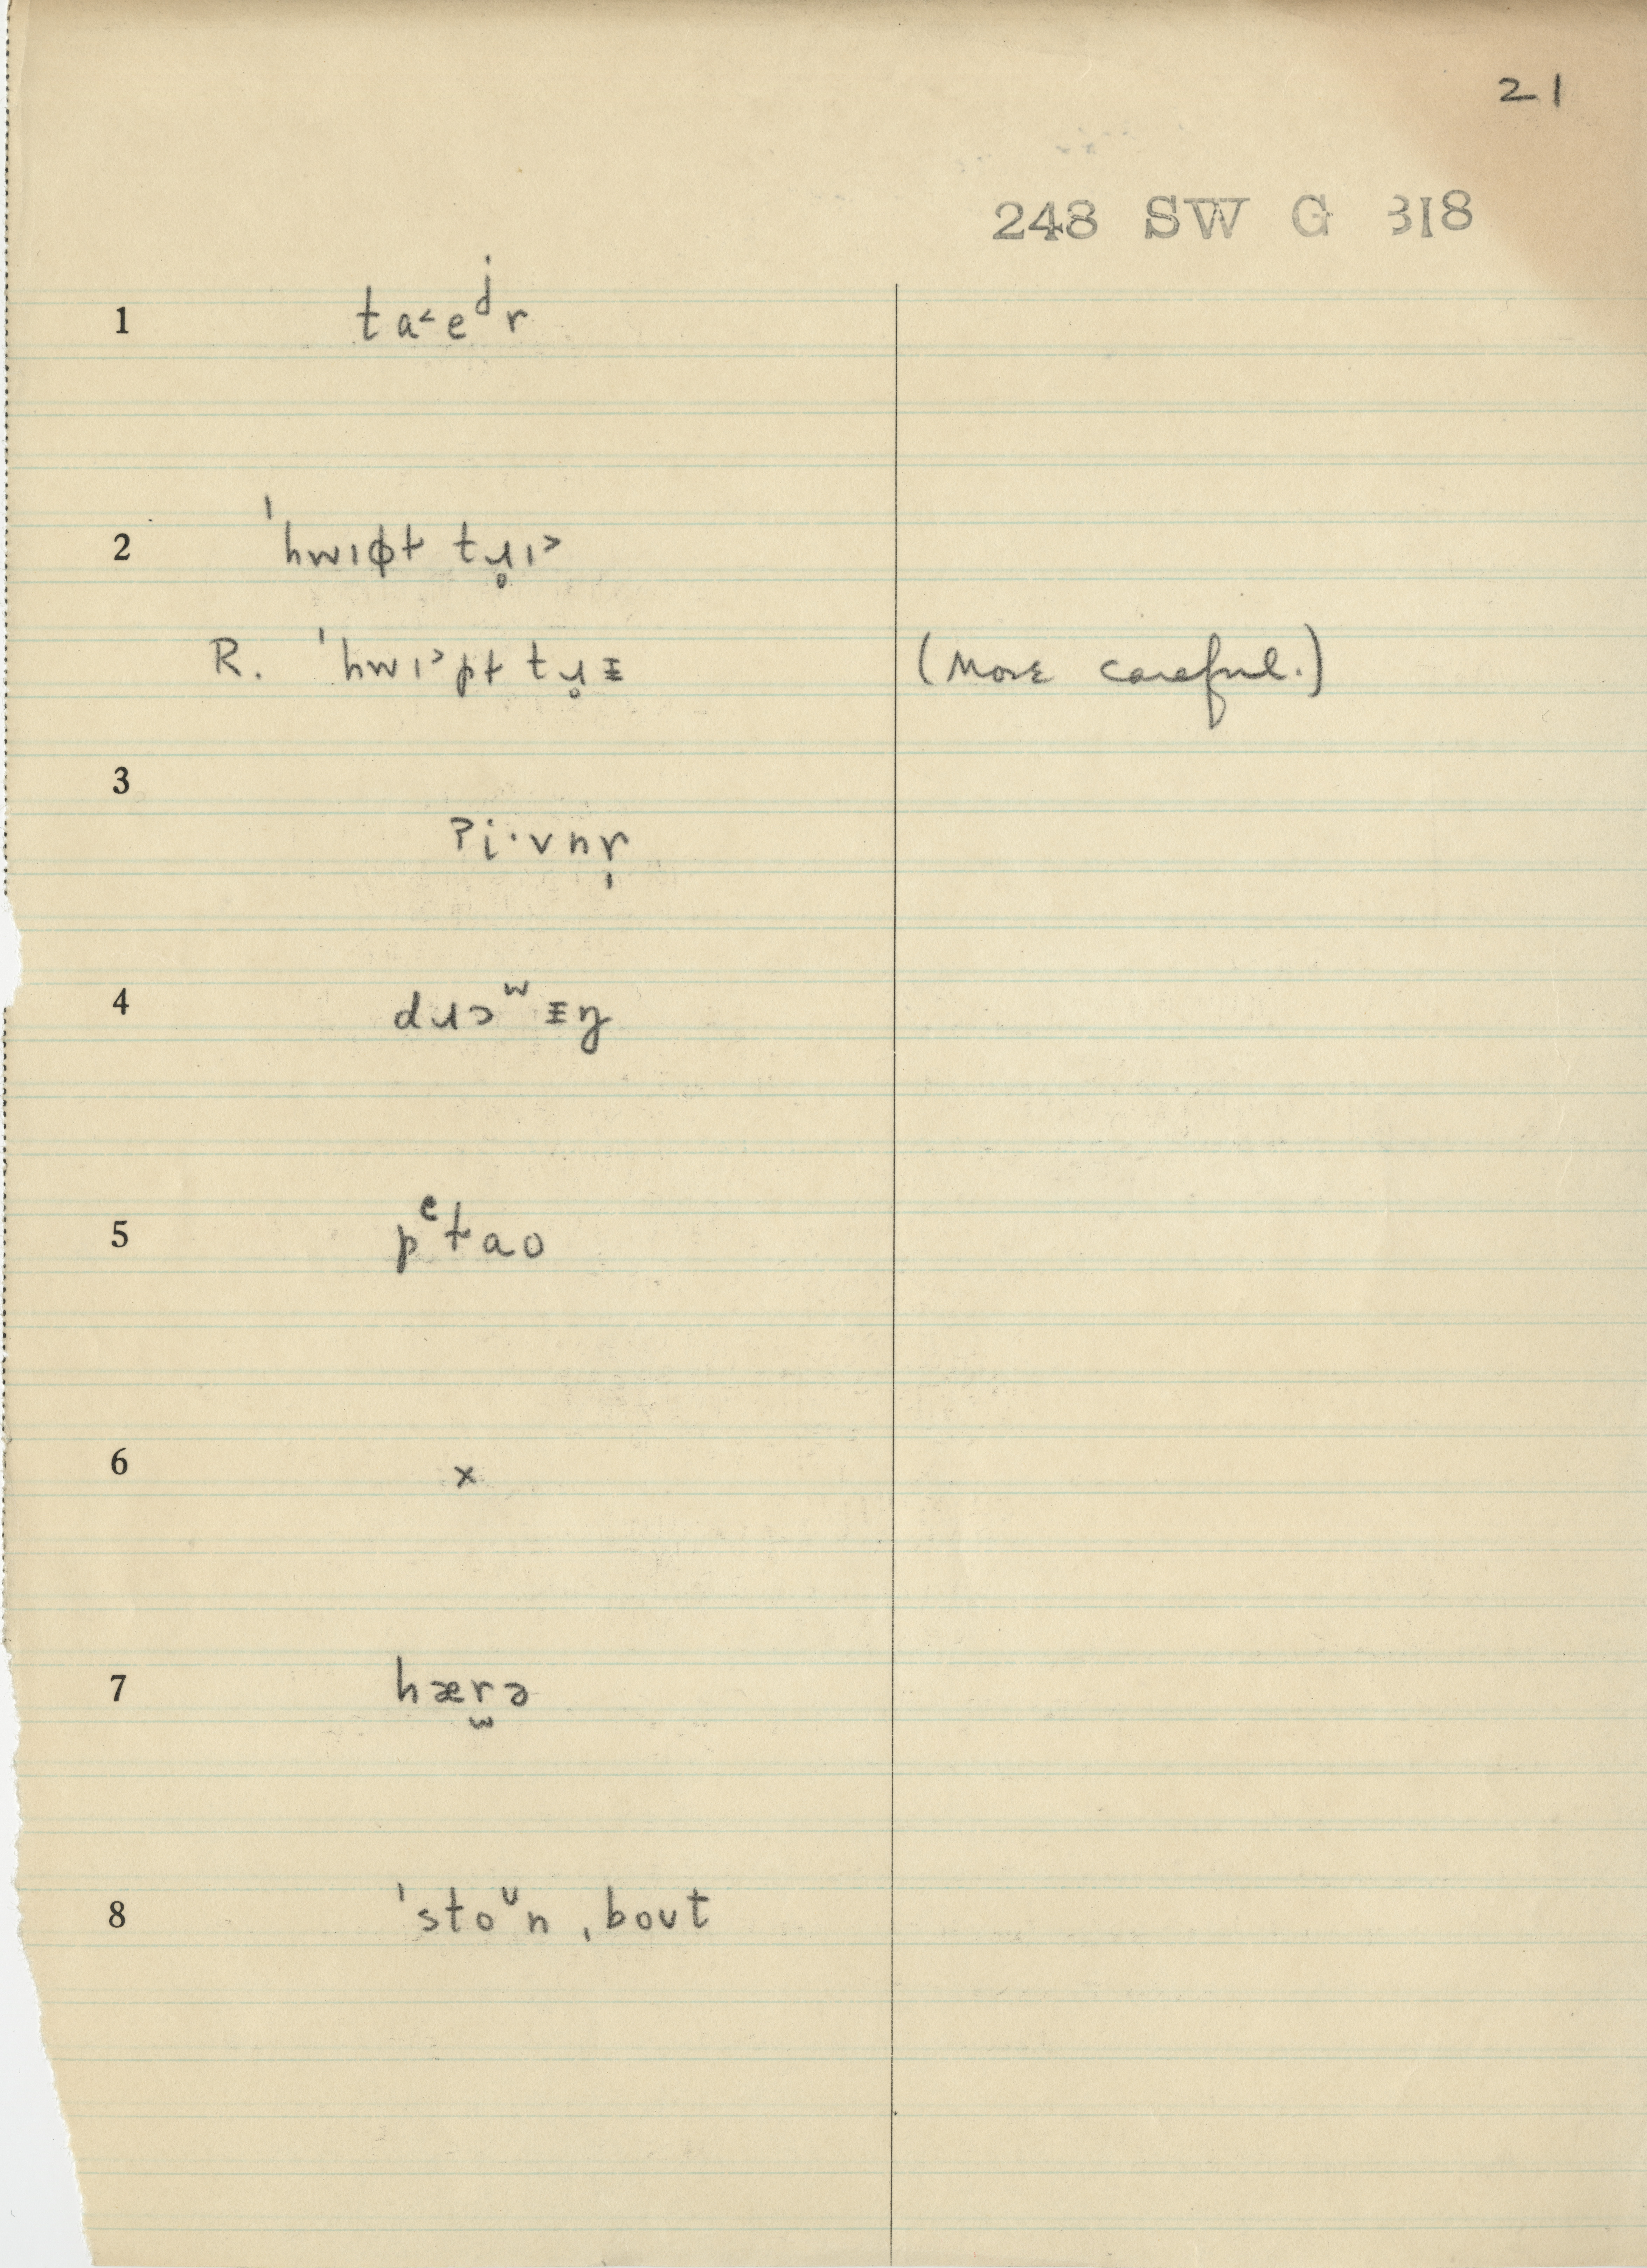 21
248 SW G 318
1 ta˂eʲr
2 ˈhwɪɸt tɹ̥ɪ˃
R. ˈhwɪ˃pt tɹ̥ᵻ (More careful.)
3 ʔi·vnr̩
4 dɹɔʷᵻŋ
5 pᵉtao
6 x
7 hær̫ə
8 ˈstoᶷn ˌboʊt